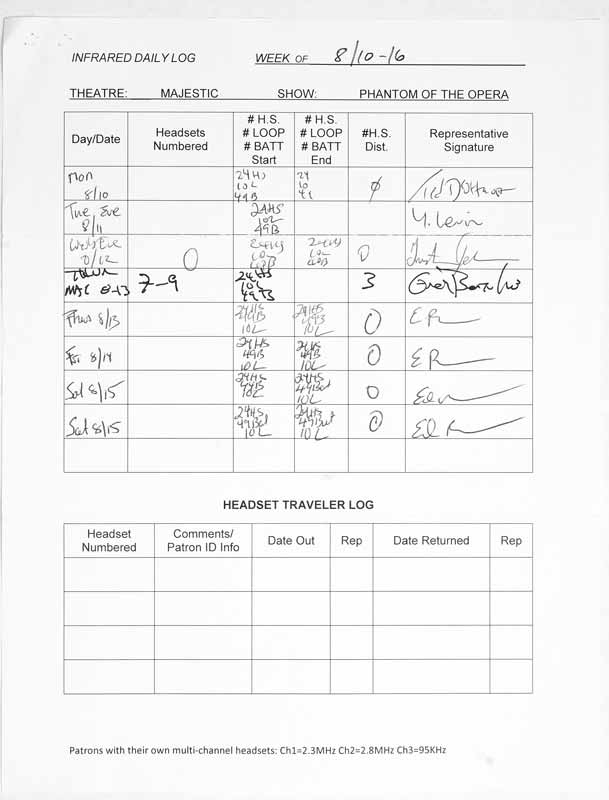 INFRARED DAILY LOG WEEK OF 8/10-16
THEATRE: MAJESTIC SHOW: PHANTOM OF THE OPERA
Day/Date Headsets Numbered # H.S. # LOOP # BATT Start # H.S. # LOOP # BATT End #H.S. Dist. Representative Signature
Mon 8/10 24HS 10L 49B 24 10 49 0
Tue Eve 8/11 24HS 10L 49B Y. Levin
Wed Eve 8/12 0 24HS 10L 49B 24HS 10L 49B 0
8-13 7-9 24HS 10L 49B 3
Thurs 8/13 24HS 49B 10L 24HS 49B 10L 0 ER
Fri 8/14 24HS 49B 10L 24HS 49B 10L 0 ER
Sat 8/15 24HS 49B 10L 24HS 49Bat 10L 0 Ed
Sat 8/15 24HS 49Bat 10L 24HS 49Bat 10L 0 Ed R
HEADSET TRAVELER LOG
Headset Numbered Comments/ Patron ID Info Date Out Rep Date Returned Rep
Patrons with their own multi-channel headsets: Ch1=2.3MHz Ch2=2.8MHz Ch3=95KHz